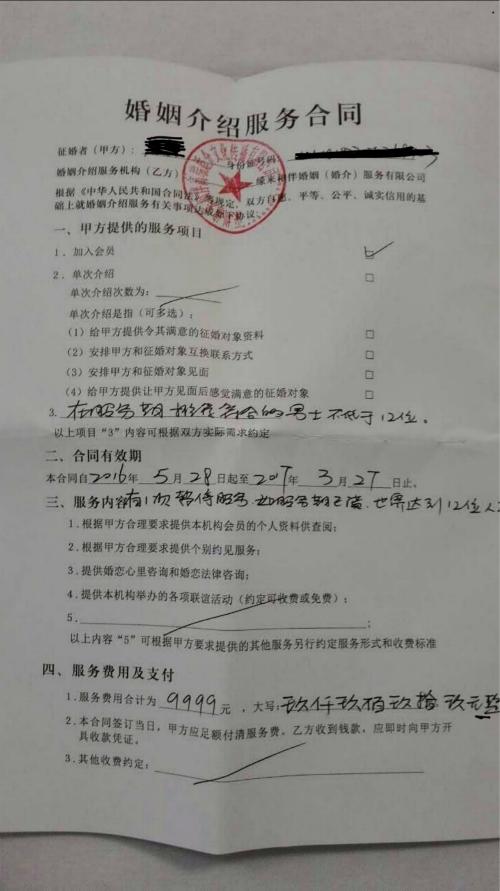 婚姻介绍服务合同
征婚者(甲方): 身份证号码:
婚姻介绍服务机构(乙方) 缘来相伴婚姻(婚介)服务有限公司
根据《中华人民共和国合同法》等规定,双方自愿、平等、公平、诚实信用的基
础上就婚姻介绍服务有关事项达成如下协议:
一、甲方提供的服务项目
1.加入会员 ☑
2.单次介绍 □
单次介绍次数为:
单次介绍是指(可多选):
(1)给甲方提供令其满意的征婚对象资料 □
(2)安排甲方和征婚对象互换联系方式 □
(3)安排甲方和征婚对象见面 □
(4)给甲方提供让甲方见面后感觉满意的征婚对象 □
3.在服务期 推荐合适的男士不低于12位。
以上项目“3”内容可根据双方实际需求约定
二、合同有效期
本合同自2016年5月28日起至2017年3月27日止。
三、服务内容有1次暂停服务 如服务期已满.也要达到12位人
1.根据甲方合理要求提供本机构会员的个人资料供查阅;
2.根据甲方合理要求提供个别约见服务;
3.提供婚恋心里咨询和婚恋法律咨询;
4.提供本机构举办的各项联谊活动(约定可收费或免费);
5.
以上内容“5”可根据甲方要求提供的其他服务另行约定服务形式和收费标准
四、服务费用及支付
1.服务费用合计为9999元,大写:玖仟玖佰玖拾玖元整
2.本合同签订当日,甲方应足额付清服务费。乙方收到钱款,应即时向甲方开
具收款凭证。
3.其他收费约定: